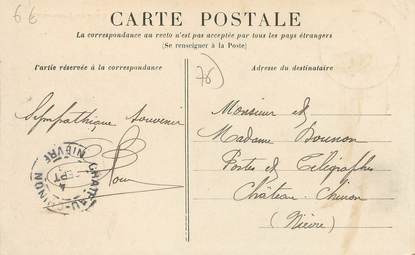 6€
CARTE POSTALE
La correspondance au recto n'est pas acceptée par tous les pays étrangers
(Se renseigner à la Poste)
Partie réservée à la correspondance
Adresse du destinataire
76
Sympathique Souvenir
Monsieur et
Madame Bounon
Postes et Télégraphes
Château-Chinon
(Nièvre)
CHATEAU-CHINON
NIÈVRE